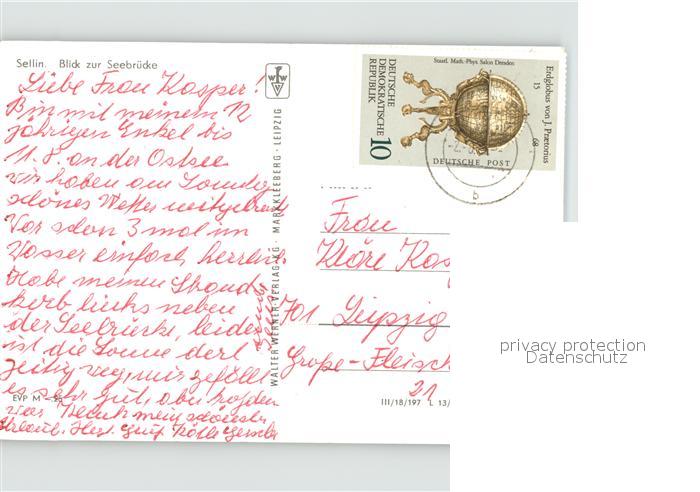 Sellin. Blick zur Seebrücke
Liebe Frau Kasper!
Bin mit meinem 12
jährigen Enkel bis
11.8. an der Ostsee
wir haben am Sonntag
schönes Wetter mitgebracht
War schon 3 mal im
Wasser einfach herrlich.
Habe meinen Strand-
korb links neben
der Seebrücke, leider
ist die Sonne derl
zeitig weg, mir gefällt
es sehr gut, aber
voer mein
Urlaub. Herzl.
EVP M -.25
WALTER WERNER-VERLAG-KG · MARKKLEEBERG · LEIPZIG
Staatl. Math.-Phys. Salon Dresden
Erdglobus von J. Prætorius
15 68
DEUTSCHE
DEMOKRATISCHE
REPUBLIK
10
DEUTSCHE POST
b
Frau
Kläre Kas
701 Leipzig
Große-Fleisch
21
III/18/197 L 13/
privacy protection
Datenschutz